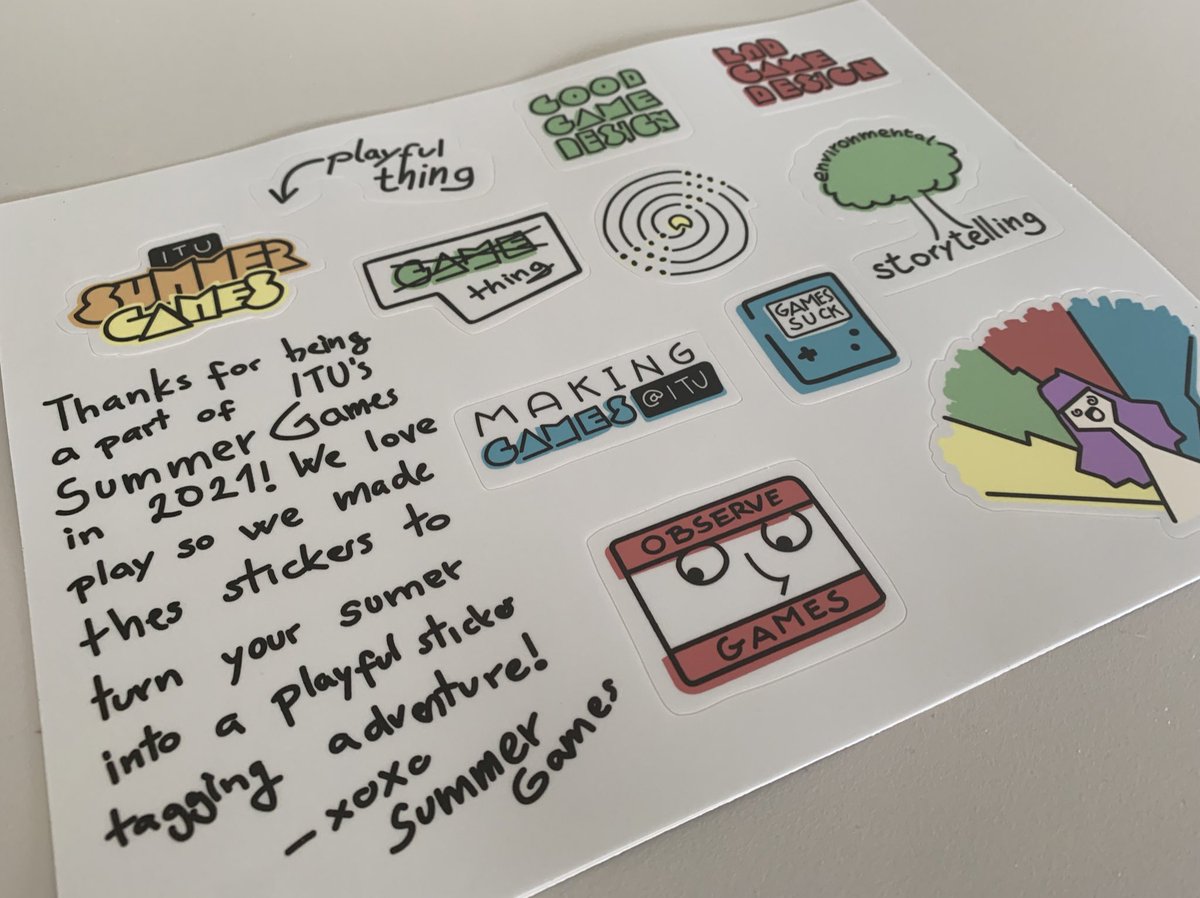 playful
thing
GOOD
GAME
DESIGN
BAD
GAME
DESIGN
environmental
storytelling
ITU
SUMMER
GAMES
GAME
thing
GAMES
SUCK
MAKING
GAMES @ITU
OBSERVE
GAMES
Thanks for being
a part of ITU's
Summer Games
in 2021! We love
play so we made
thes stickers to
turn your sumer
into a playful sticker
tagging adventure!
_xoxo
Summer
Games